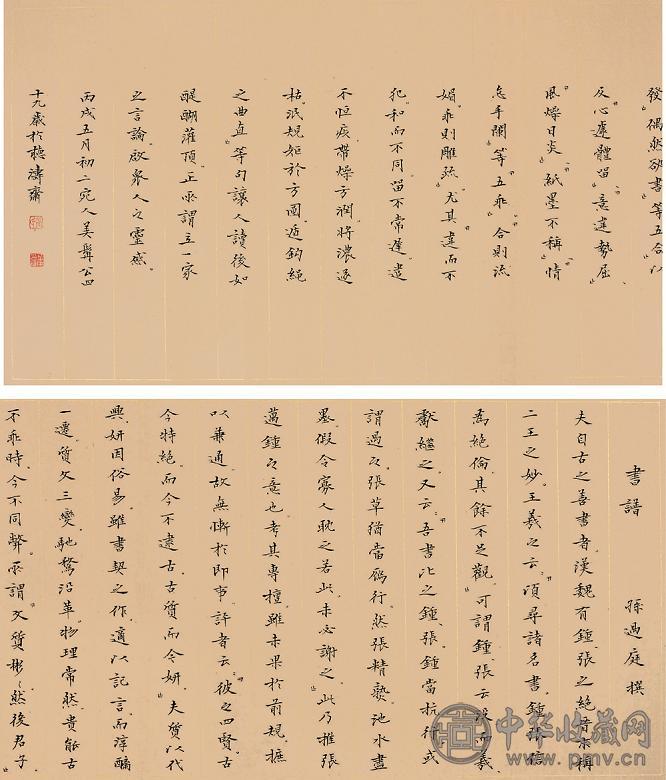 發偶然欲書等五合以
反心遽體留意違勢屈
風燥日炎紙墨不稱情
怠手闌等五乖合則流
媚乖則雕疏尤其違而不
犯和而不同留不常遲遣
不恒疾帶燥方潤將濃遂
枯泯規矩於方圓遁鈎繩
之曲直等句讓人讀後如
醍醐灌頂正所謂立一家
之言論啟衆人之靈感
丙戌五月初二宛人美髯公四
十九歲於聽濤齋
書譜 孫過庭 撰
夫自古之善書者漢魏有鍾張之絕晉末稱
二王之妙王羲之云頃尋諸名書鍾張信
為絕倫其餘不足觀可謂鍾張云没而羲
獻繼之又云吾書比之鍾張鍾當抗行或
謂過之張草猶當鴈行然張精熟池水盡
墨假令寡人耽之若此未必謝之此乃推張
邁鍾之意也考其專擅雖未果於前規摭
以兼通故無慚於即事評者云彼之四賢古
今特絕而今不逮古古質而今妍夫質以代
興妍因俗易雖書契之作適以記言而淳醨
一遷質文三變馳騖沿革物理常然貴能古
不乖時今不同弊所謂文質彬彬然後君子
中华收藏网
www.pmv.cn